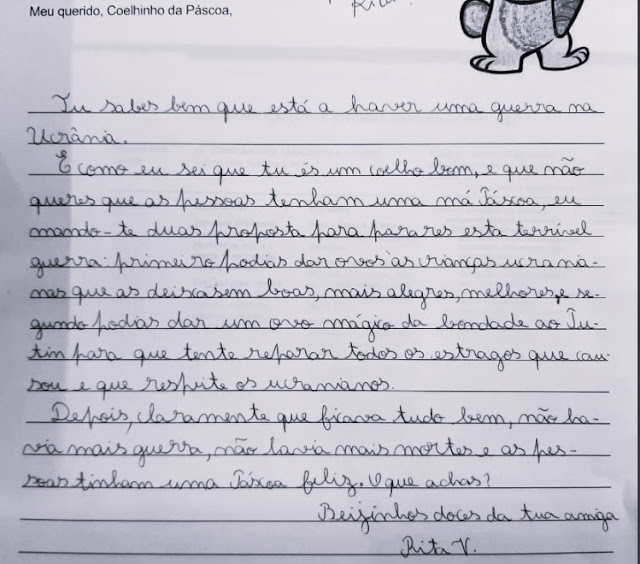 Meu querido, Coelhinho da Páscoa,
Tu sabes bem que está a haver uma guerra na
Ucrânia.
E como eu sei que tu és um coelho bom, e que não
queres que as pessoas tenham uma má Páscoa, eu
mando-te duas proposta para parares esta terrível
guerra: primeiro podias dar ovos às crianças ucrania-
nas que as deixasem boas, mais alegres, melhores, e se-
gundo podias dar um ovo mágico da bondade ao Pu-
tin para que tente reparar todos os estragos que cau-
sou e que respeite os ucranianos.
Depois, claramente que ficava tudo bem, não ha-
via mais guerra, não havia mais mortes e as pes-
soas tinham uma Páscoa feliz. O que achas?
Beijinhos doces da tua amiga
Rita V.